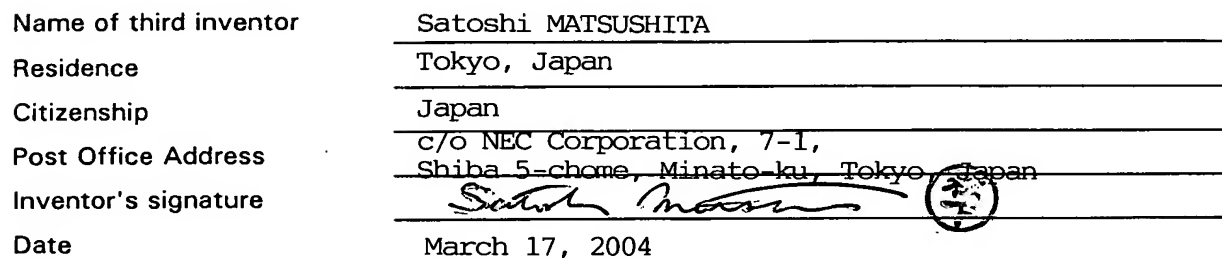 Name of third inventor Satoshi MATSUSHITA
Residence Tokyo, Japan
Citizenship Japan
Post Office Address c/o NEC Corporation, 7-1,
Shiba 5-chome, Minato-ku, Tokyo, Japan
Inventor's signature Satoshi
Date March 17, 2004